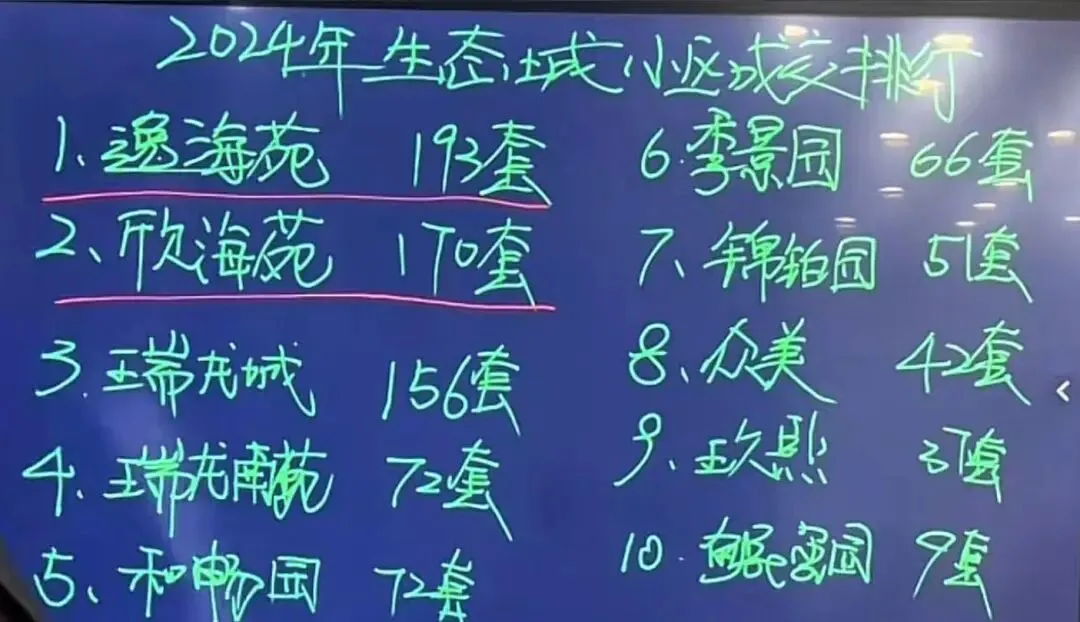 2024年生态城小区成交排行
1、逸海苑 193套
2、欣海苑 170套
3.瑞龙城 156套
4.瑞龙南苑 72套
5、和畅园 72套
6.季景园 66套
7、锦铂园 51套
8、众美 42套
9、玖熙 37套
10. 园 9套